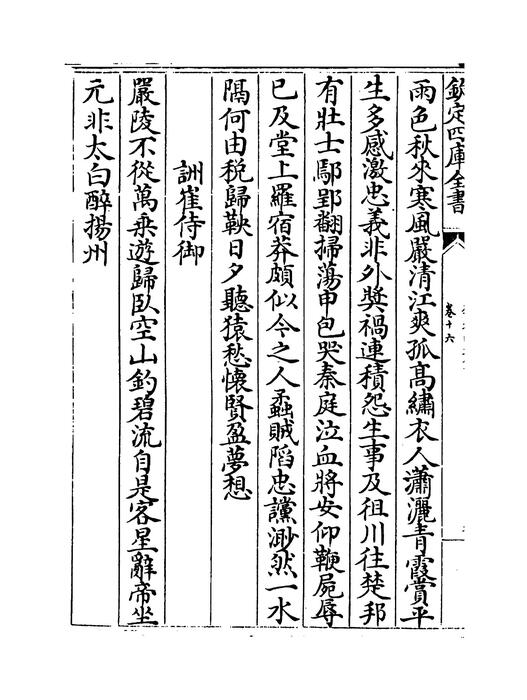 欽定四庫全書
卷十六
雨色秋來寒風嚴清江爽孤高繡衣人瀟灑青霞賞平
生多感激忠義非外奬禍連積怨生事及徂川往楚邦
有壯士鄢郢翻掃蕩申包哭秦庭泣血將安仰鞭屍辱
已及堂上羅宿莽頗似今之人蟊賊陷忠讜渺然一水
隔何由税歸鞅日夕聽猿愁懷賢盈夢想
詶崔侍御
嚴陵不從萬乘遊歸臥空山釣碧流自是客星辭帝坐
元非太白醉揚州